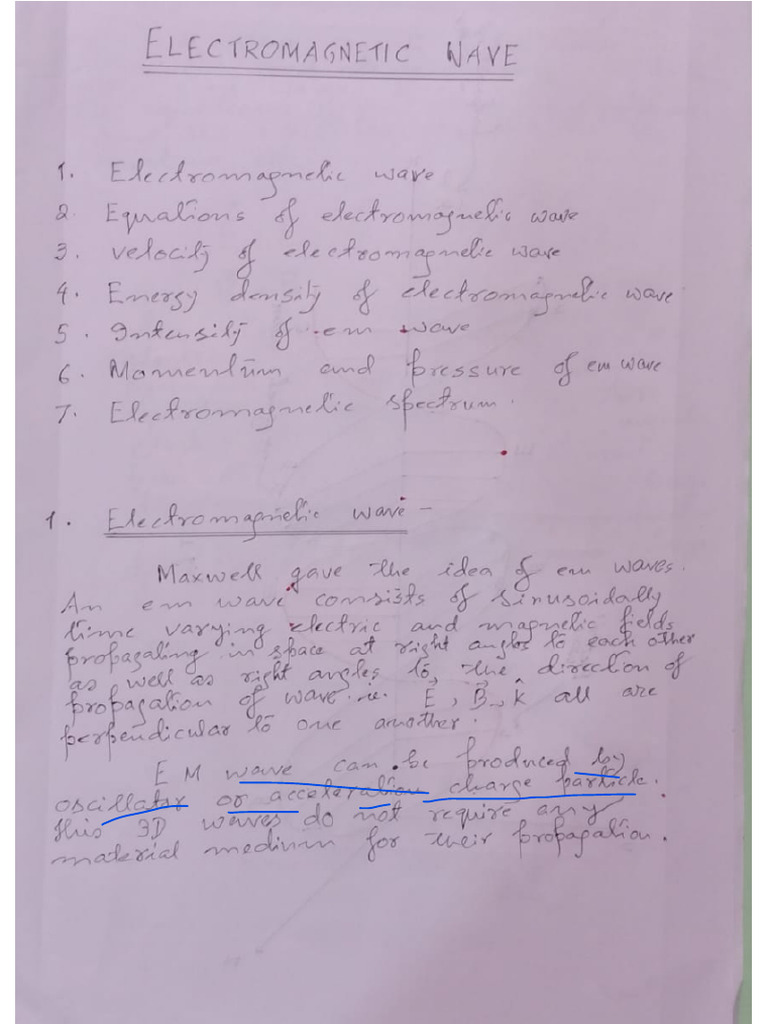 ELECTROMAGNETIC WAVE
1. Electromagnetic wave
2. Equations of electromagnetic wave
3. velocity of electromagnetic wave
4. Energy density of electromagnetic wave
5. Intensity of em wave
6. Momentum and pressure of em wave
7. Electromagnetic spectrum.
1. Electromagnetic wave -
Maxwell gave the idea of em waves.
An em wave consists of sinusoidally
time varying electric and magnetic fields
propagating in space at right angles to each other
as well as right angles to, the direction of
propagation of wave. i.e. E, B, k all are
perpendicular to one another.
EM wave can be produced by
oscillator or acceleration charge particle.
this 3D waves do not require any
material medium for their propagation.